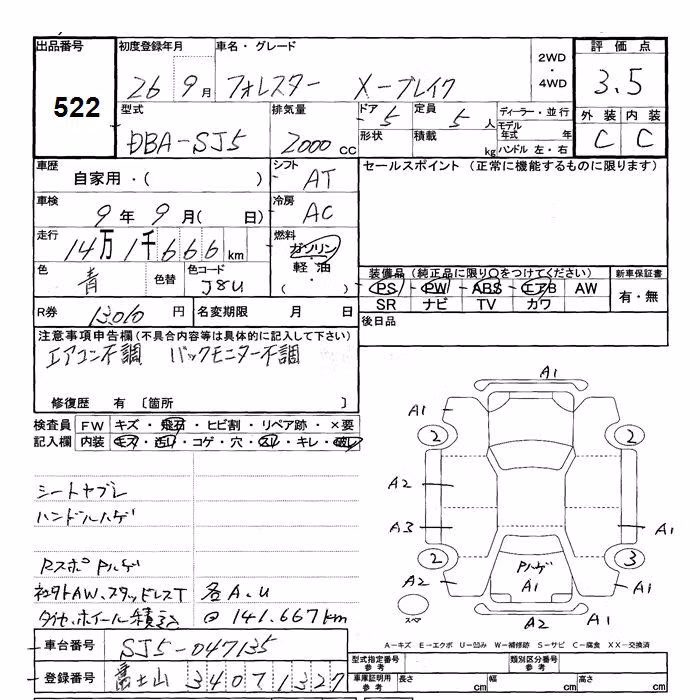 出品番号
522
初度登録年月
26 9月
車名・グレード
フォレスター X-ブレイク
2WD
・
4WD
評価点
3.5
型式
DBA-SJ5
排気量
2000 cc
ドア 5
定員 5 人
形状
積載 kg
ディーラー・並行
モデル年式 年
ハンドル 左・右
外装 内装
C C
車歴
自家用・( )
シフト
AT
セールスポイント (正常に機能するものに限ります)
車検
9年 9月( 日)
冷房
AC
走行
14万1千666km
燃料
ガソリン
・
軽油
( )
色
青
色替
色コード
J8U
装備品 (純正品に限り○をつけてください)
PS PW ABS エアB AW
SR ナビ TV カワ
新車保証書
有・無
R券 13010 円
名変期限 月 日
後日品
注意事項申告欄(不具合内容等は具体的に記入して下さい)
エアコン不調 バックモニター不調
修復歴 有 〔箇所 〕
検査員 FW キズ・飛石・ヒビ割・リペア跡・×要
記入欄 内装 キズ・汚レ・コゲ・穴・スレ・キレ・破レ
シートヤブレ
ハンドルハゲ
RスポPハゲ
社外AW.スタッドレスT 各A.U
タイヤ.ホイール積込 @ 141.667km
A1
A1 A1
2 2
A2
A3 A1
2 3
Pハゲ
A1
A2 A1
スペア
A2 A1
A=キズ E=エクボ U=凹み W=補修跡 S=サビ C=腐食 XX=交換済
車台番号 SJ5-047135
登録番号 富士山 340 71327
型式指定番号
参考
類別区分番号
参考
車庫証明用
参考
長さ cm
幅 cm
高さ cm